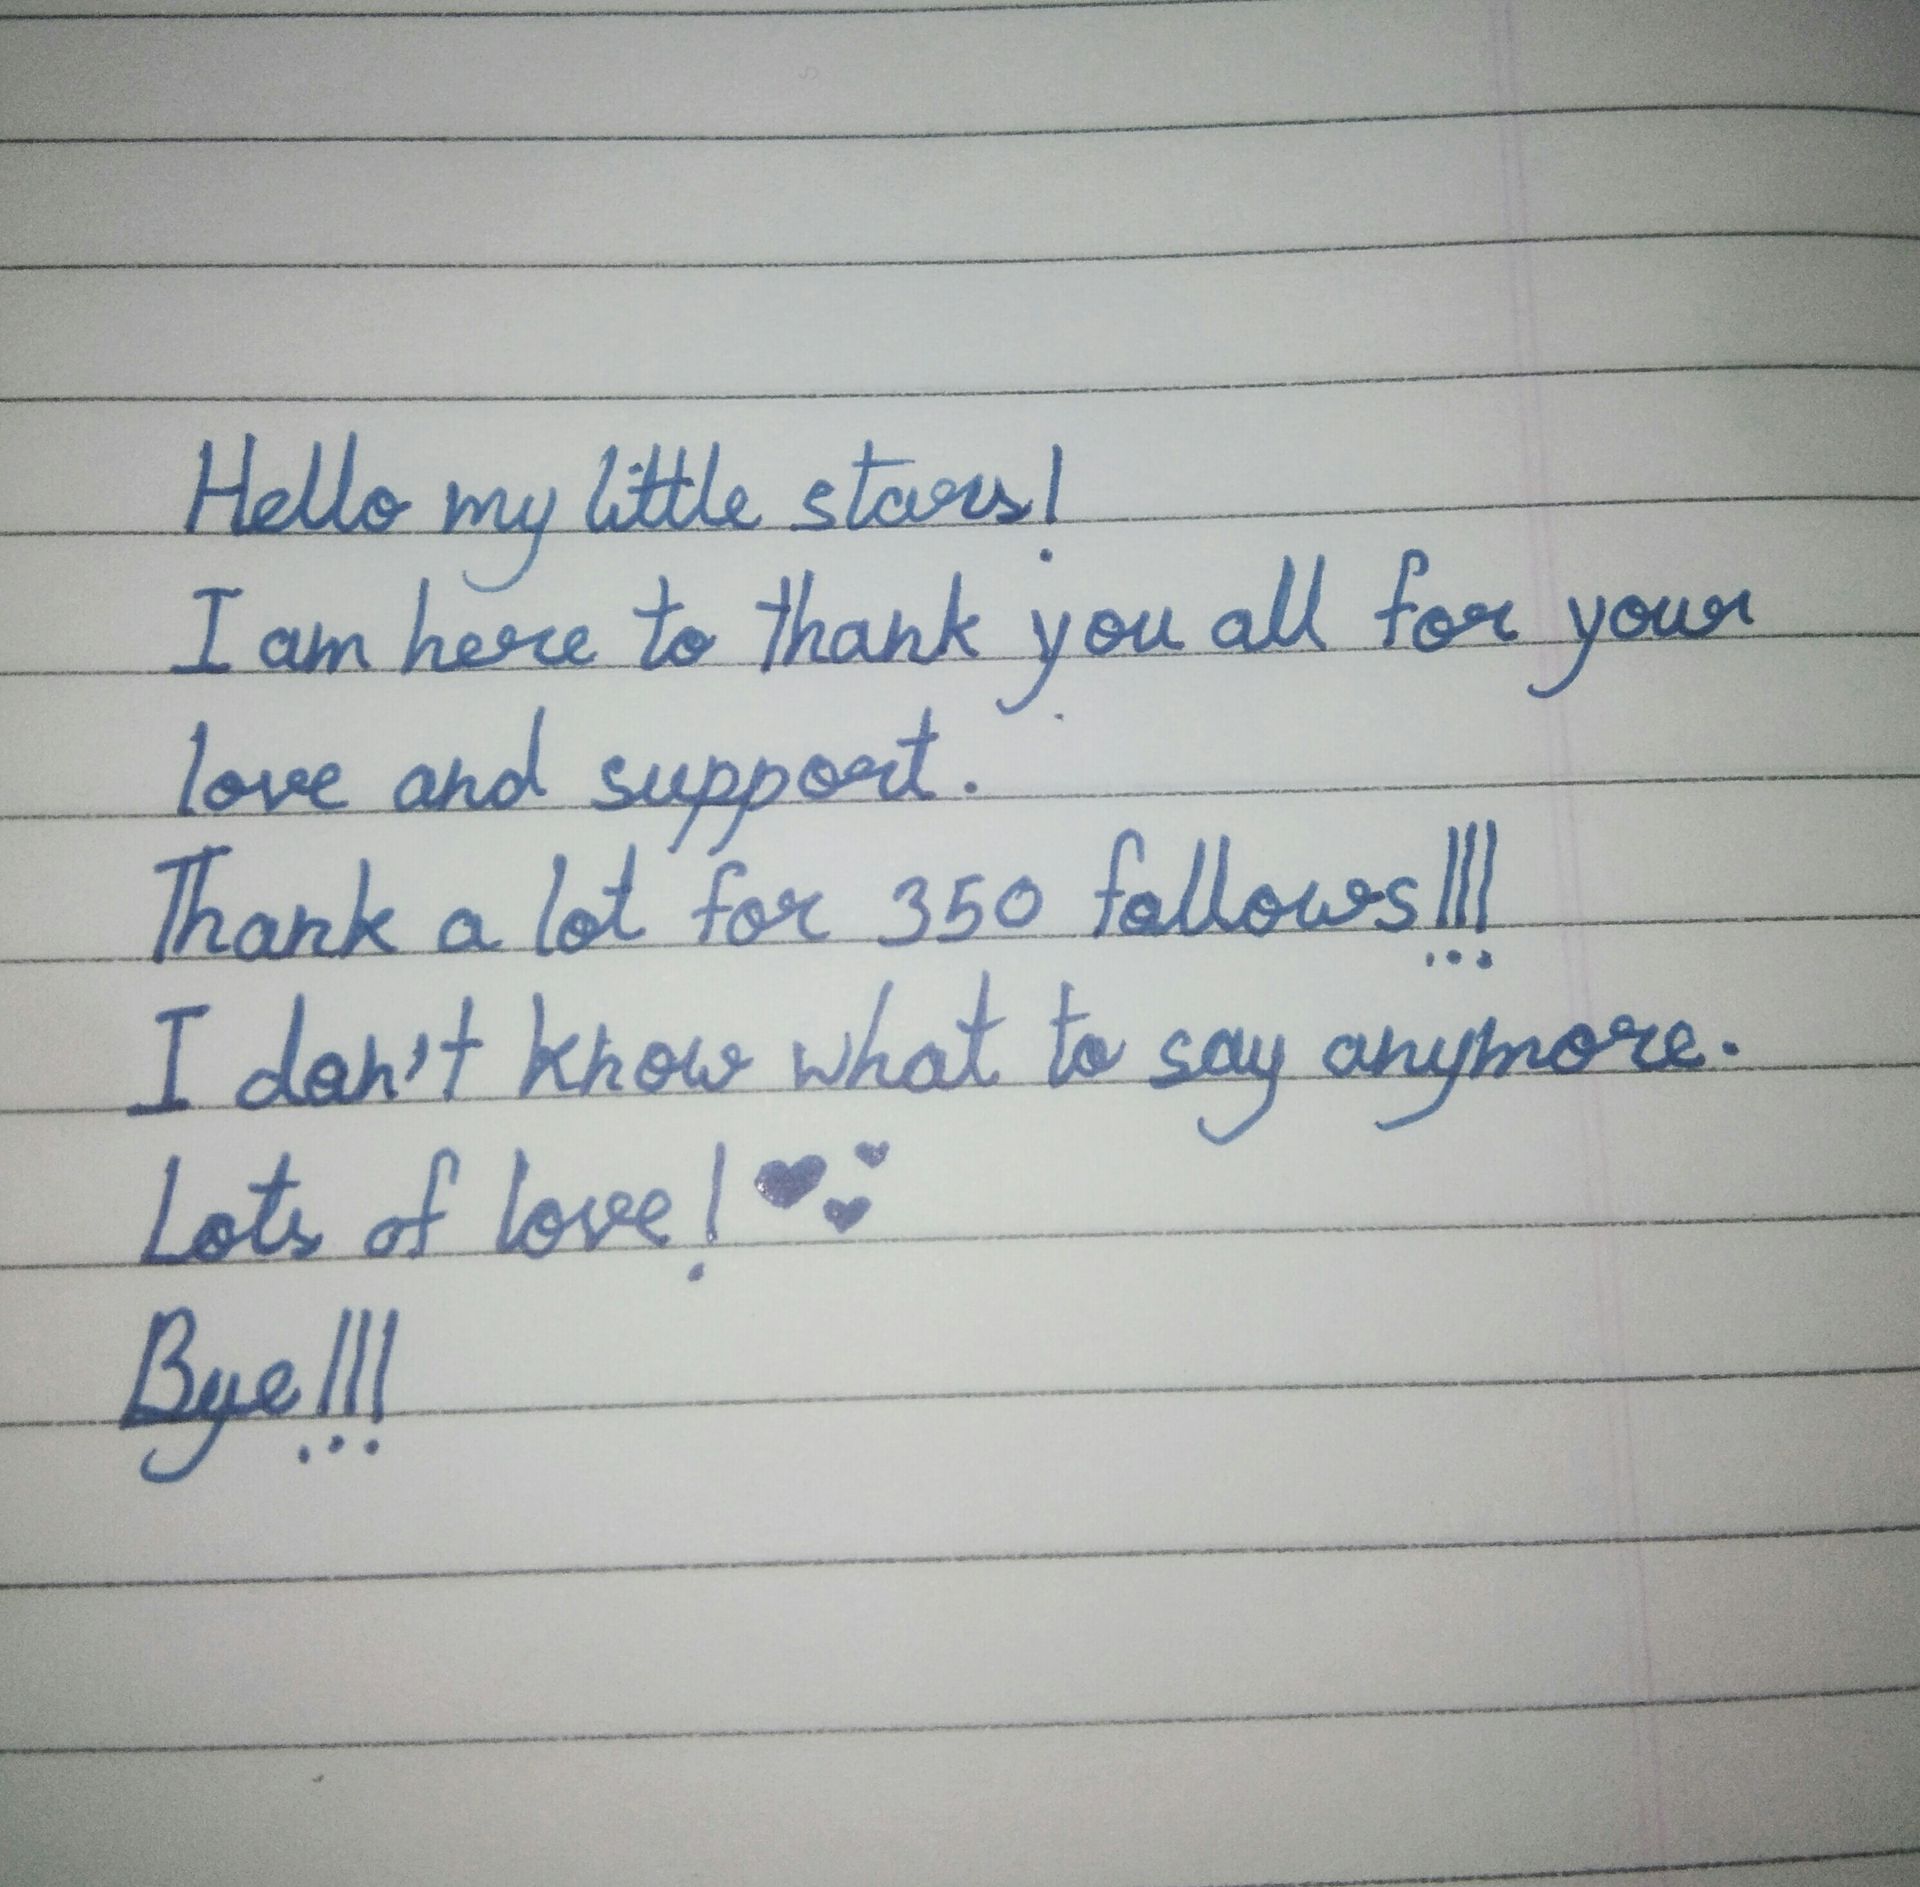 Hello my little stars!
I am here to thank you all for your
love and support.
Thank a lot for 350 follows!!!
I don't know what to say anymore.
Lots of love!
Bye!!!